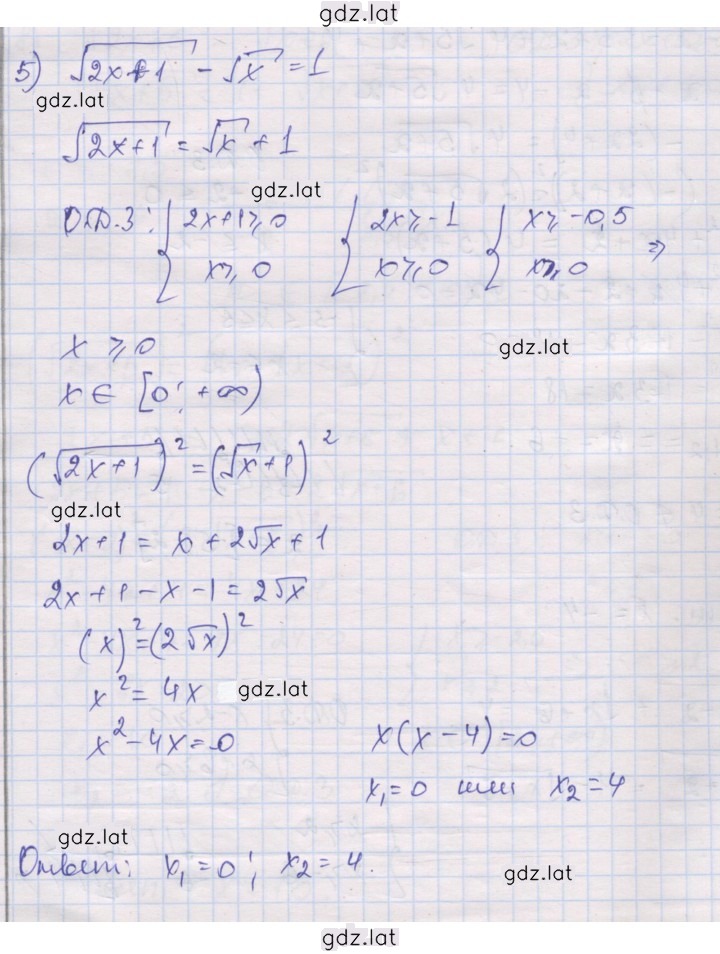 gdz.lat
5) √(2x+1) - √x = 1
gdz.lat
√(2x+1) = √x + 1
gdz.lat
О.Д.З: { 2x+1 ⩾ 0 { 2x ⩾ -1 { x ⩾ -0,5
x ⩾ 0 x ⩾ 0 x ⩾ 0 ⇒
x ⩾ 0 gdz.lat
x ∈ [0; +∞)
(√(2x+1))² = (√x+1)²
gdz.lat
2x+1 = x + 2√x + 1
2x+1-x-1 = 2√x
(x)² = (2√x)²
x² = 4x gdz.lat
x² - 4x = 0 x(x-4) = 0
x₁ = 0 или x₂ = 4
gdz.lat
Ответ: x₁ = 0; x₂ = 4.
gdz.lat
gdz.lat